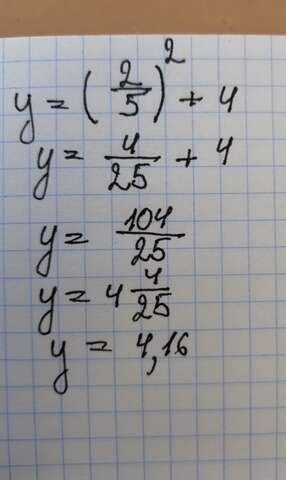 y = (2/5)² + 4
y = 4/25 + 4
y = 104/25
y = 4 4/25
y = 4,16